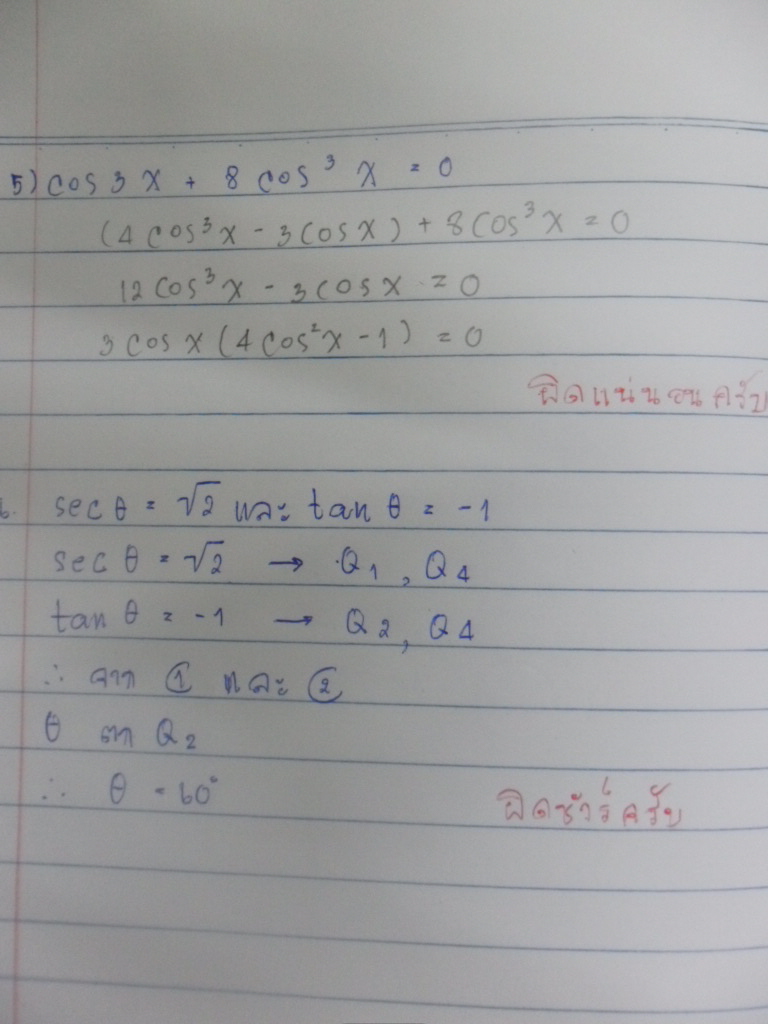 5) cos 3x + 8 cos³ x = 0
(4 cos³x - 3 cosx) + 8 cos³x = 0
12 cos³x - 3 cosx = 0
3 cosx (4 cos²x - 1) = 0
ผิดแน่นอนครับ
6. sec θ = √2 และ tan θ = -1
sec θ = √2 → Q1, Q4
tan θ = -1 → Q2, Q4
∴ จาก ① และ ②
θ ตก Q2
∴ θ = 60°
ผิดชัวร์ครับ